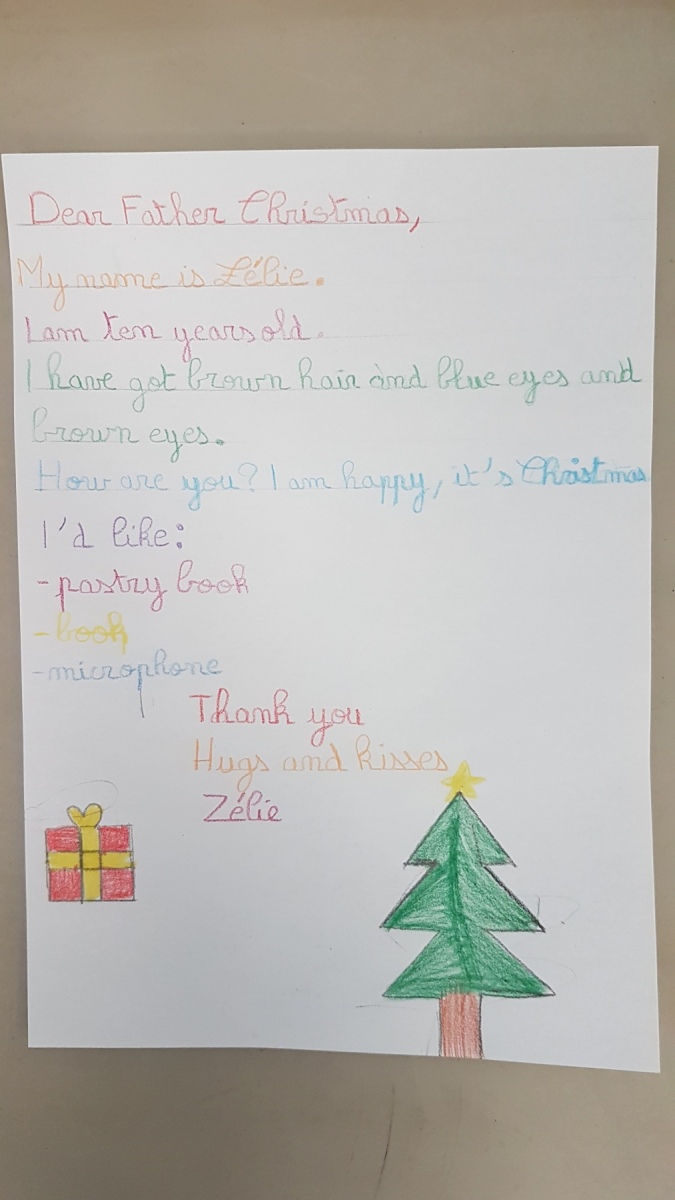 Dear Father Christmas,
My name is Zélie.
I am ten years old.
I have got brown hair and blue eyes and
brown eyes.
How are you? I am happy, it's Christmas
I'd like:
-pastry book
-book
-microphone
Thank you
Hugs and kisses
Zélie